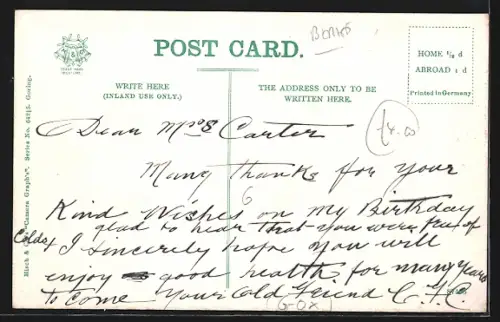 BORKS
POST CARD.
HOME ½ d
ABROAD 1 d
Printed in Germany
WRITE HERE
(INLAND USE ONLY.)
THE ADDRESS ONLY TO BE
WRITTEN HERE.
£4.00
Dear Mrs Carter
Many thanks for your
6
Kind Wishes on my Birthday
glad to hear that you were free of
Colds I sincerely hope you will
enjoy good health for many years
to come Your Old Friend C. F. C.
Series No. 6215. Goring.